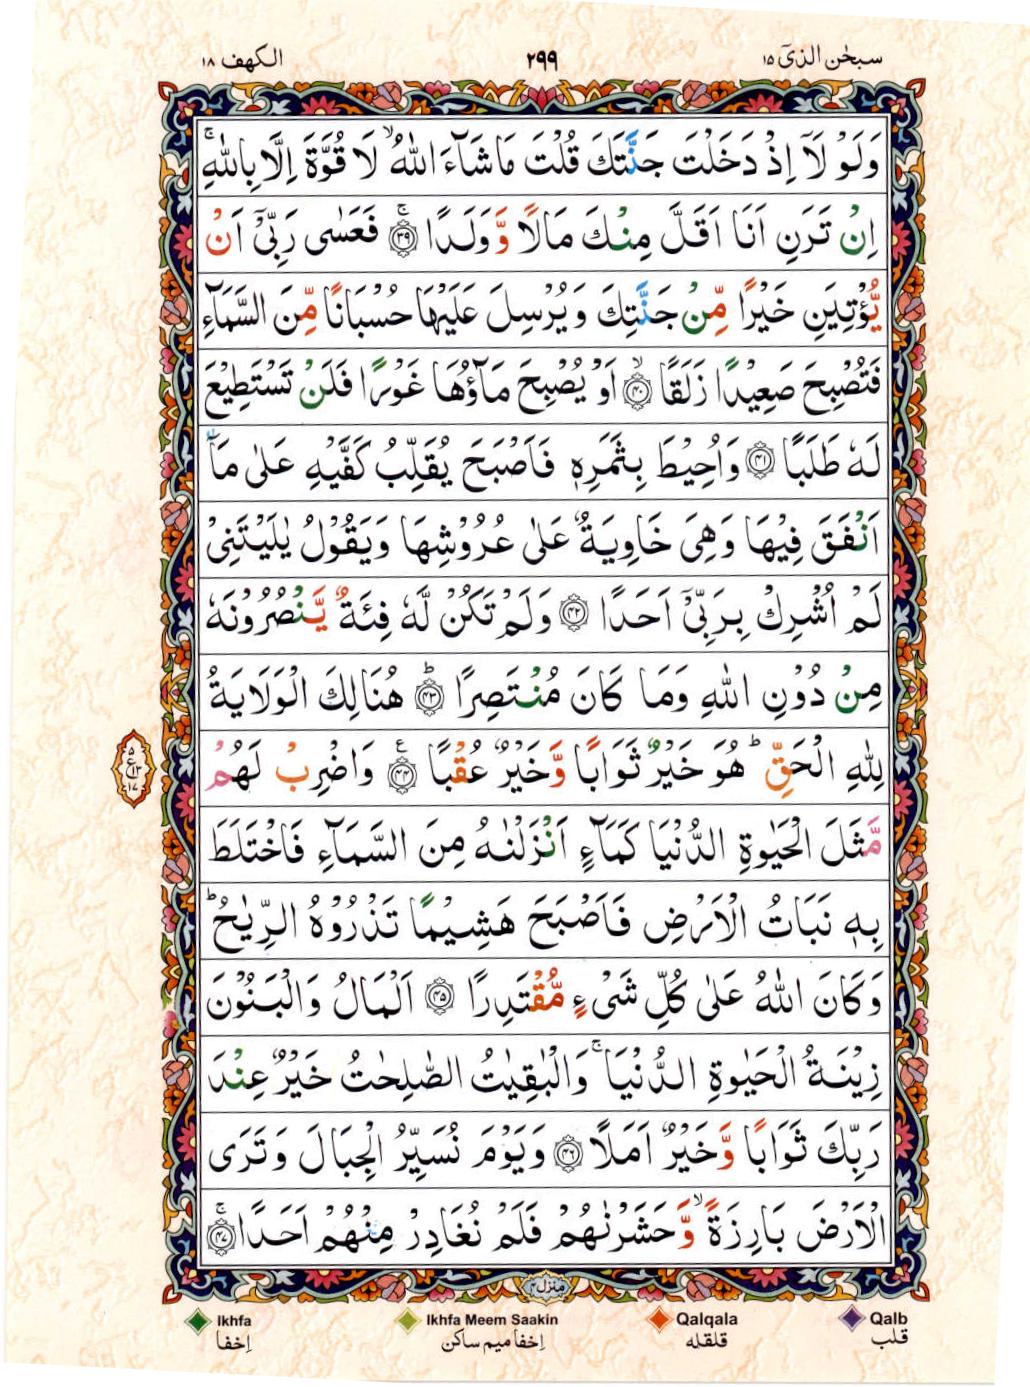 سبحٰن الذیٓ ۱۵
۲۹۹
الكهف ۱۸
وَلَوْ لَاۤ اِذْ دَخَلْتَ جَنَّتَكَ قُلْتَ مَا شَآءَ اللّٰهُ ۙ لَا قُوَّةَ اِلَّا بِاللّٰهِ ۚ
اِنْ تَرَنِ اَنَا اَقَلَّ مِنْكَ مَالًا وَّوَلَدًا ۚ ﴿۳۹﴾ فَعَسٰى رَبِّیْۤ اَنْ
يُّؤْتِيَنِ خَيْرًا مِّنْ جَنَّتِكَ وَيُرْسِلَ عَلَيْهَا حُسْبَانًا مِّنَ السَّمَآءِ
فَتُصْبِحَ صَعِيْدًا زَلَقًا ۙ ﴿۴۰﴾ اَوْ يُصْبِحَ مَآؤُهَا غَوْرًا فَلَنْ تَسْتَطِيْعَ
لَهٗ طَلَبًا ﴿۴۱﴾ وَاُحِيْطَ بِثَمَرِهٖ فَاَصْبَحَ يُقَلِّبُ كَفَّيْهِ عَلٰى مَاۤ
اَنْفَقَ فِيْهَا وَهِیَ خَاوِيَةٌ عَلٰى عُرُوْشِهَا وَيَقُوْلُ يٰلَيْتَنِیْ
لَمْ اُشْرِكْ بِرَبِّیْۤ اَحَدًا ﴿۴۲﴾ وَلَمْ تَكُنْ لَّهٗ فِئَةٌ يَّنْصُرُوْنَهٗ
مِنْ دُوْنِ اللّٰهِ وَمَا كَانَ مُنْتَصِرًا ؕ ﴿۴۳﴾ هُنَالِكَ الْوَلَايَةُ
لِلّٰهِ الْحَقِّ ؕ هُوَ خَيْرٌ ثَوَابًا وَّخَيْرٌ عُقْبًا ﴿۴۴﴾ ع وَاضْرِبْ لَهُمْ
۵
ع ۱۳
۱۷
مَّثَلَ الْحَيٰوةِ الدُّنْيَا كَمَآءٍ اَنْزَلْنٰهُ مِنَ السَّمَآءِ فَاخْتَلَطَ
بِهٖ نَبَاتُ الْاَرْضِ فَاَصْبَحَ هَشِيْمًا تَذْرُوْهُ الرِّيٰحُ ؕ
وَكَانَ اللّٰهُ عَلٰى كُلِّ شَیْءٍ مُّقْتَدِرًا ﴿۴۵﴾ اَلْمَالُ وَالْبَنُوْنَ
زِيْنَةُ الْحَيٰوةِ الدُّنْيَا ۚ وَالْبٰقِيٰتُ الصّٰلِحٰتُ خَيْرٌ عِنْدَ
رَبِّكَ ثَوَابًا وَّخَيْرٌ اَمَلًا ﴿۴۶﴾ وَيَوْمَ نُسَيِّرُ الْجِبَالَ وَتَرَى
الْاَرْضَ بَارِزَةً ۙ وَّحَشَرْنٰهُمْ فَلَمْ نُغَادِرْ مِنْهُمْ اَحَدًا ۚ ﴿۴۷﴾
منزل ۴
Ikhfa
إخفا
Ikhfa Meem Saakin
إخفا ميم ساكن
Qalqala
قلقله
Qalb
قلب